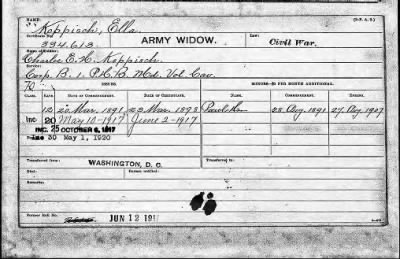 NAME:
Koppisch, Ella
Certificate No.
334.613.
ARMY WIDOW.
Law:
Civil War.
Name of Soldier:
Charles E. H. Koppisch
Service:
Corp. B. 1. P.H.B. Md. Vol. Cav.
ISSUE.
MINORS—$2 PER MONTH ADDITIONAL.
CLASS.
RATE.
DATE OF COMMENCEMENT.
DATE OF CERTIFICATE.
NAME.
COMMENCEMENT.
ENDING.
12 20 Mar. 1891 23 Mar. 1893 28 Aug. 1891 27 Aug 1907
Inc 20 May 10-1917 June 2-1917
INC. 25 OCTOBER 6, 1917
Inc 30 May 1, 1920
Transferred from
WASHINGTON, D. C.
Transferred to
Died:
Bureau notified:
Remarks:
Former Roll No.
JUN 12 191